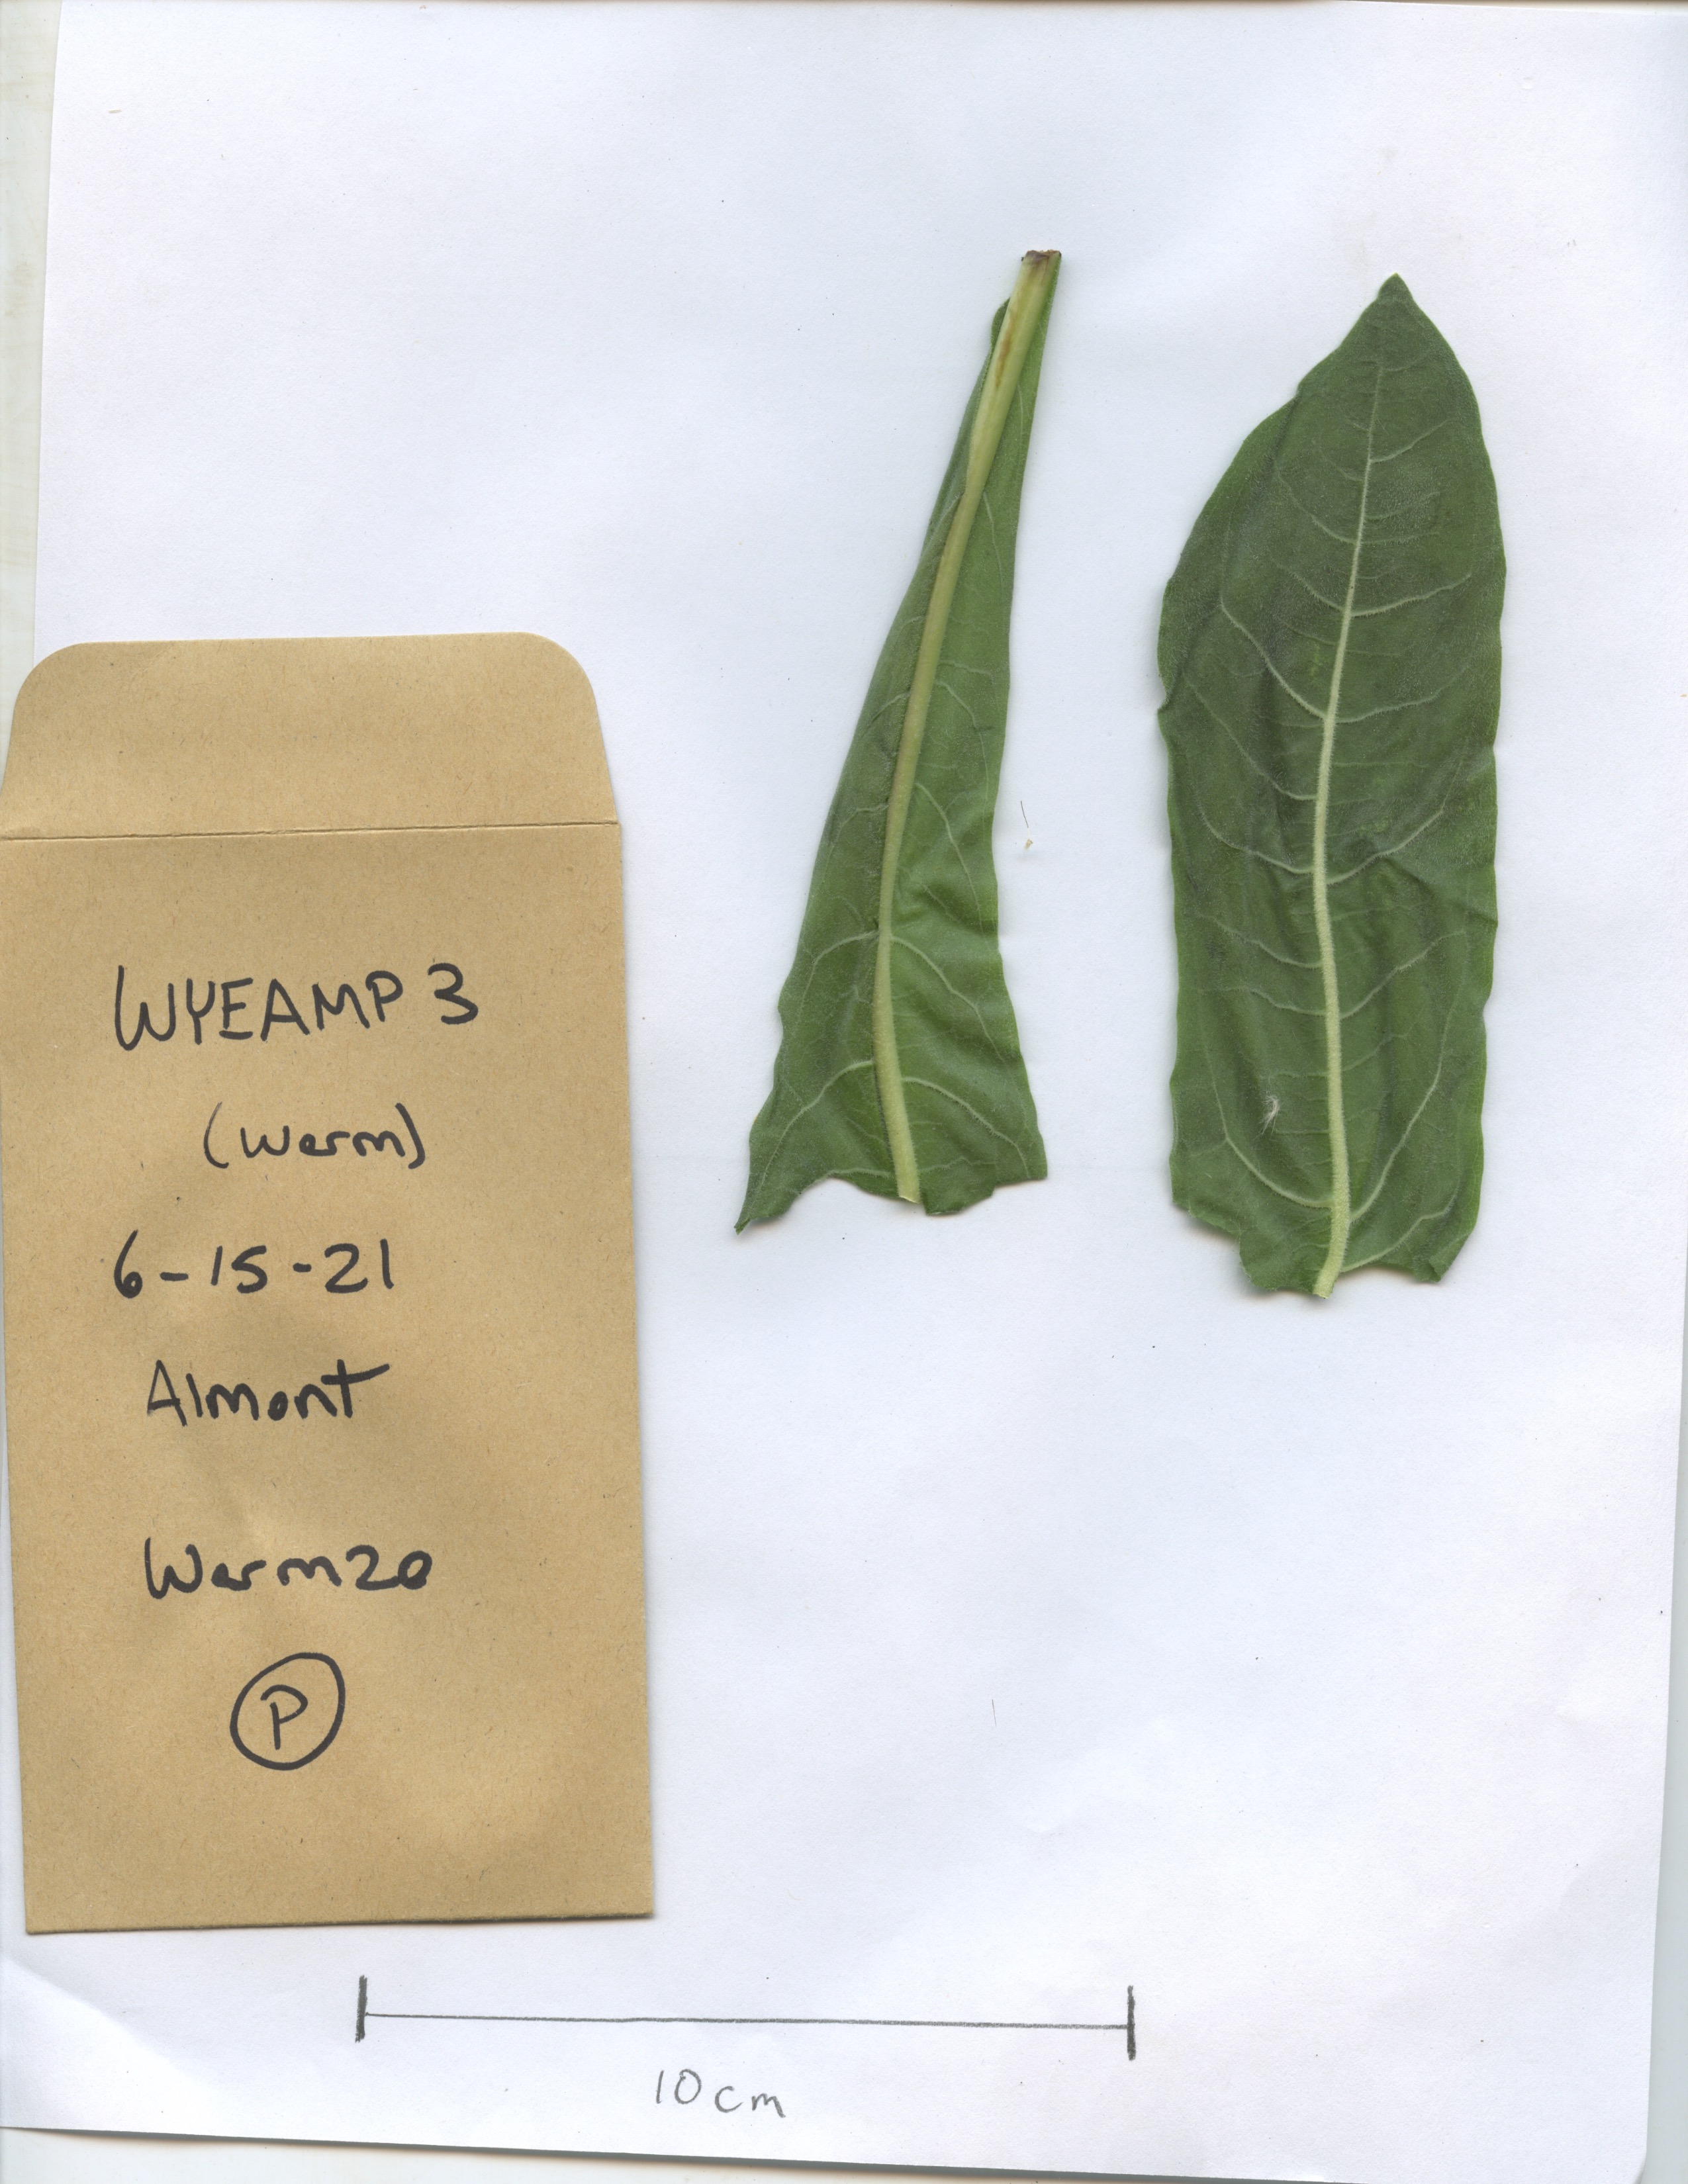 WYEAMP 3
(Warm)
6-15-21
Almont
Warm20
P
10cm